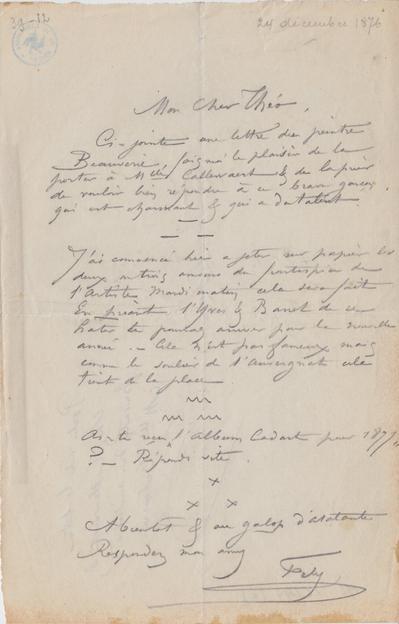 39-12
24 décembre 1876
Mon Cher Théo,
Ci-jointe une lettre du peintre
Beauverie, fais-moi le plaisir de la
porter à Mr de Callewaert & de le prier
de vouloir bien répondre à ce brave garçon
qui est charmant & qui a du talent.
J'ai commencé hier a jeter sur papier les
deux ou trois du frontispice de
l'Artiste Mardi matin cela sera fait
En pressant l'Yver & Banet de se
hater tu pourras arriver pour la nouvelle
année. - Cela n'est pas fameux mais
comme le soulier de l'auvergnat cela
tient de la place.
As-tu reçu l'Album Cadart pour 1877
? - Réponds vite.
A bientot & au galop
Respondez mon amy
Fély